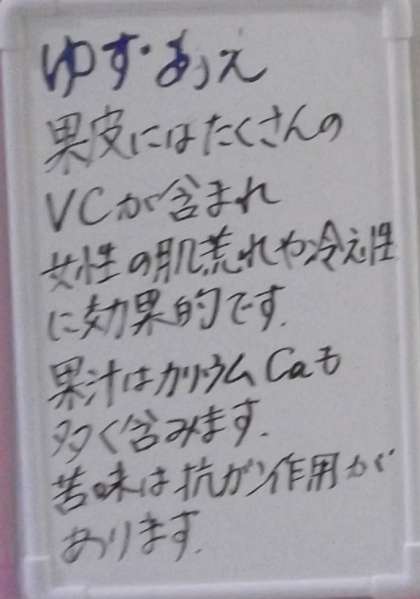 ゆず・あうえ
果皮にはたくさんの
VCが含まれ
女性の肌荒れや冷え性
に効果的です.
果汁はカリウムCaも
多く含みます.
苦味は抗がん作用が
あります.